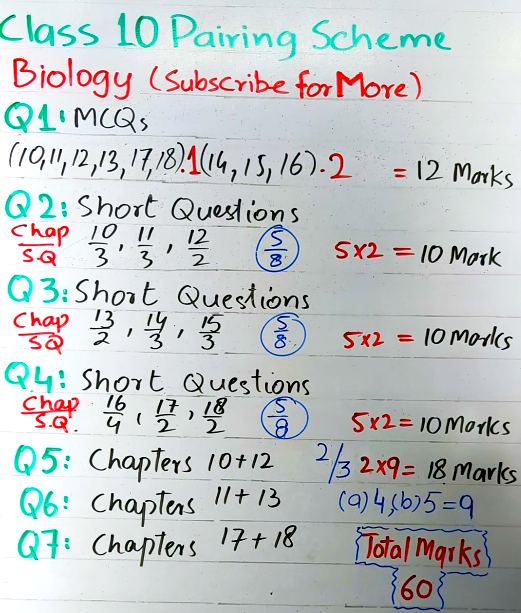 Class 10 Pairing Scheme
Biology (Subscribe for More)
Q1: MCQs
(10,11,12,13,17,18).1(14,15,16).2 = 12 Marks
Q2: Short Questions
Chap/S.Q 10/3, 11/3, 12/2 5/8 5x2 = 10 Mark
Q3: Short Questions
Chap/SQ 13/2, 14/3, 15/3 5/8 5x2 = 10 Marks
Q4: Short Questions
Chap/S.Q. 16/4, 17/2, 18/2 5/8 5x2 = 10 Marks
Q5: Chapters 10+12 2/3 2x9 = 18 Marks
Q6: Chapters 11+13 (a)4,(b)5=9
Q7: Chapters 17+18 Total Marks
60